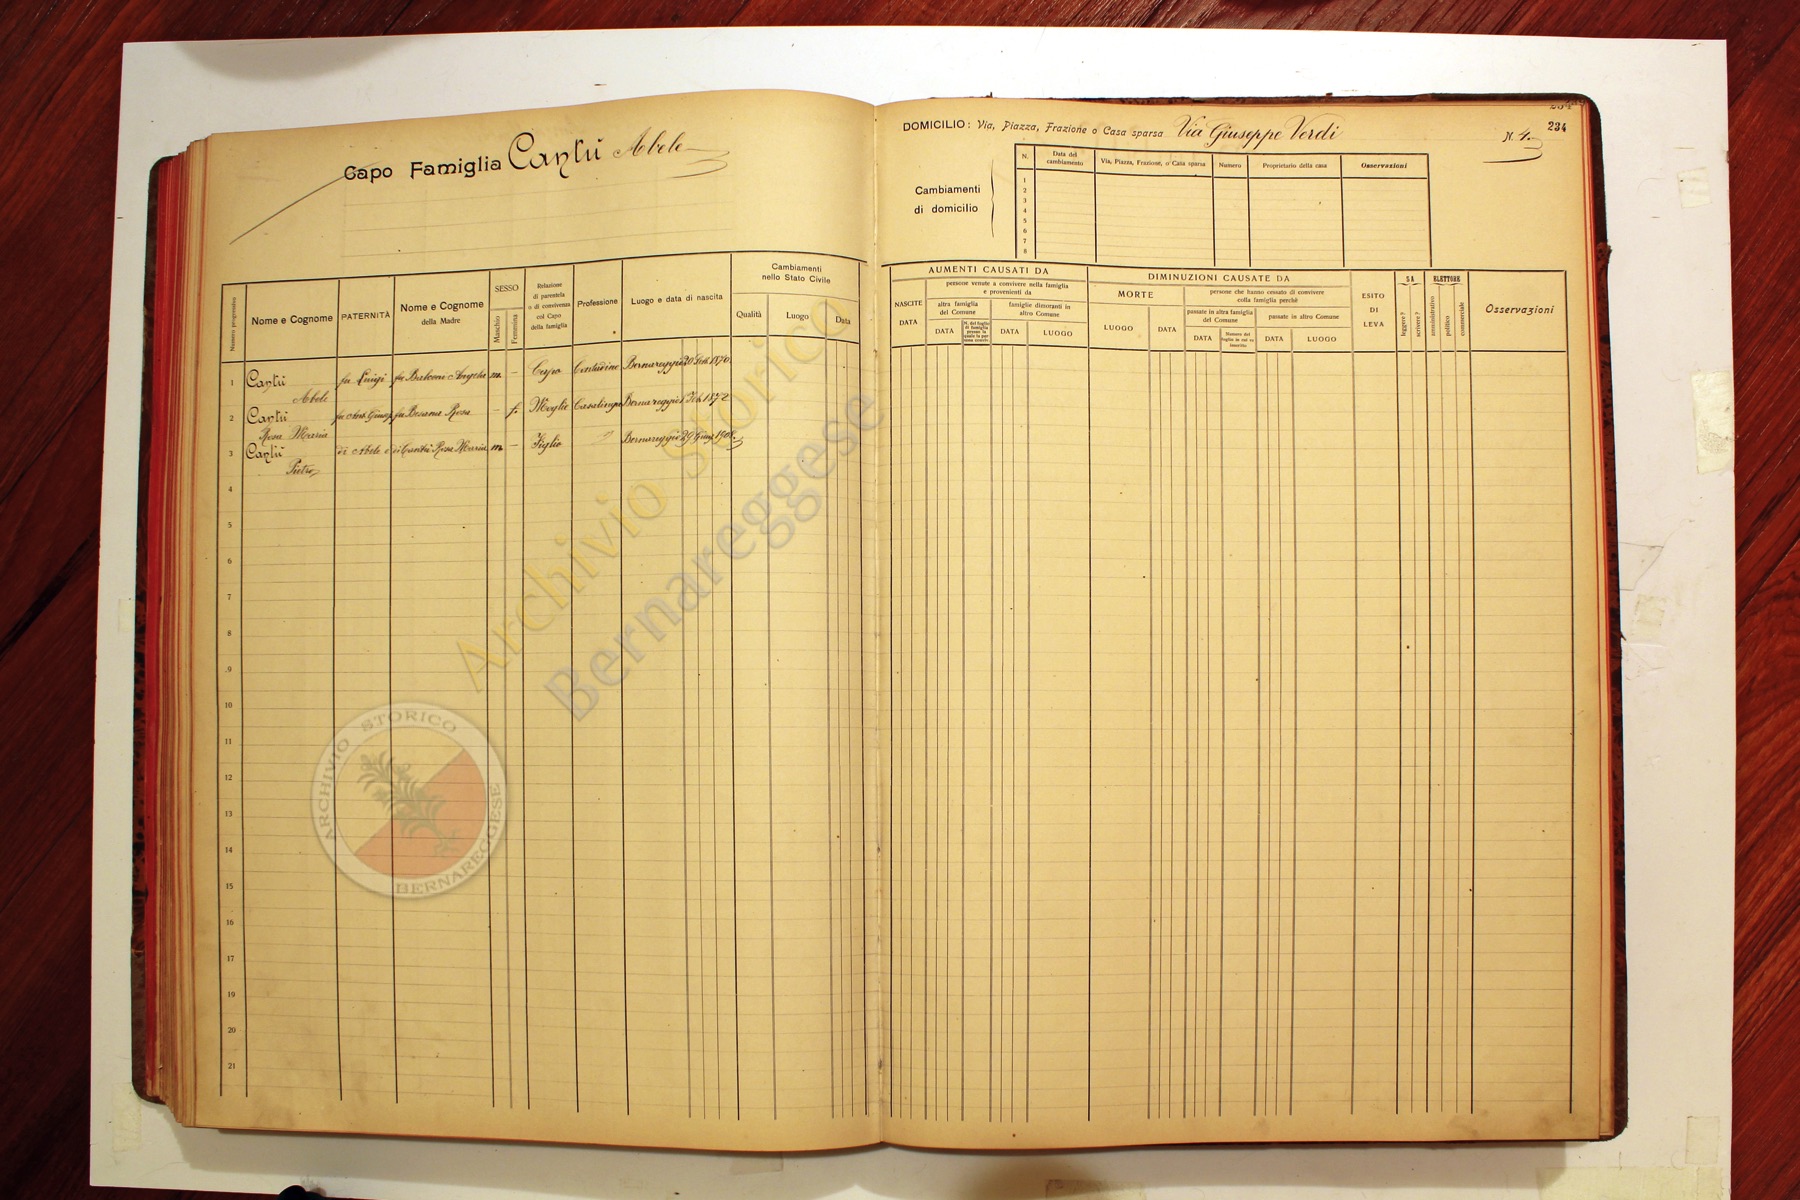 Capo Famiglia Cantù Abele
DOMICILIO: Via, Piazza, Frazione o Casa sparsa Via Giuseppe Verdi N. 4.
234
Cambiamenti
di domicilio
N. Data del cambiamento Via, Piazza, Frazione, o Cata sparsa Numero Proprietario della casa Osservazioni
1
2
3
4
5
6
7
8
Numero progressivo
Nome e Cognome
PATERNITÀ
Nome e Cognome
della Madre
SESSO
Maschio
Femmina
Relazione
di parentela
o di convivenza
col Capo
della famiglia
Professione
Luogo e data di nascita
Cambiamenti
nello Stato Civile
Qualità Luogo Data
AUMENTI CAUSATI DA
NASCITE
DATA
persone venute a convivere nella famiglia
e provenienti da
altra famiglia
del Comune
DATA
famiglie dimoranti in
altro Comune
DATA LUOGO
DIMINUZIONI CAUSATE DA
MORTE
LUOGO DATA
persone che hanno cessato di convivere
colla famiglia perchè
passate in altra famiglia
del Comune
DATA
Numero del
foglio in cui va
inscritto
passate in altro Comune
DATA LUOGO
ESITO
DI
LEVA
SA
leggere?
scrivere?
ELETTORE
amministrativo
politico
commerciale
Osservazioni
1 Cantù fu Luigi fu Balconi Angela m. – Capo Contadino Bernareggio 1870.
Abele
2 Cantù fu Besana Rosa – f. Moglie Casalinga Bernareggio 1872
Rosa Maria
3 Cantù di Abele di Cantù Rosa Maria m – Figlio " Bernareggio 29 1908.
Pietro
4
5
6
7
8
9
10
11
12
13
14
15
16
17
18
19
20
21
Archivio Storico
Bernareggese
ARCHIVIO STORICO
BERNAREGGESE